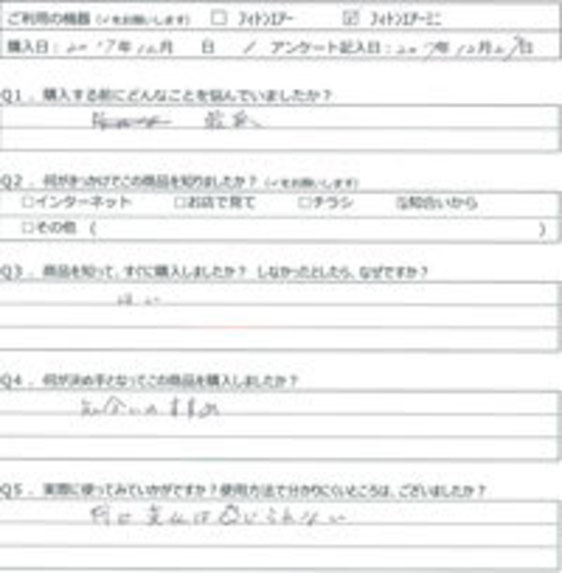 ご利用の機器（✓をお願いします） □ フィトンエアー ☑ フィトンエアーミニ
購入日：2017年12月 日 / アンケート記入日：2017年12月27日
Q1．購入する前にどんなことを悩んでいましたか？
Q2．何がきっかけでこの商品を知りましたか？（✓をお願いします）
□インターネット □お店で見て □チラシ ☑知合いから
□その他（ ）
Q3．商品を知って、すぐに購入しましたか？ しなかったとしたら、なぜですか？
はい
Q4．何が決め手となってこの商品を購入しましたか？
知合いのすすめ
Q5．実際に使ってみていかがですか？使用方法で分かりにくいところは、ございましたか？